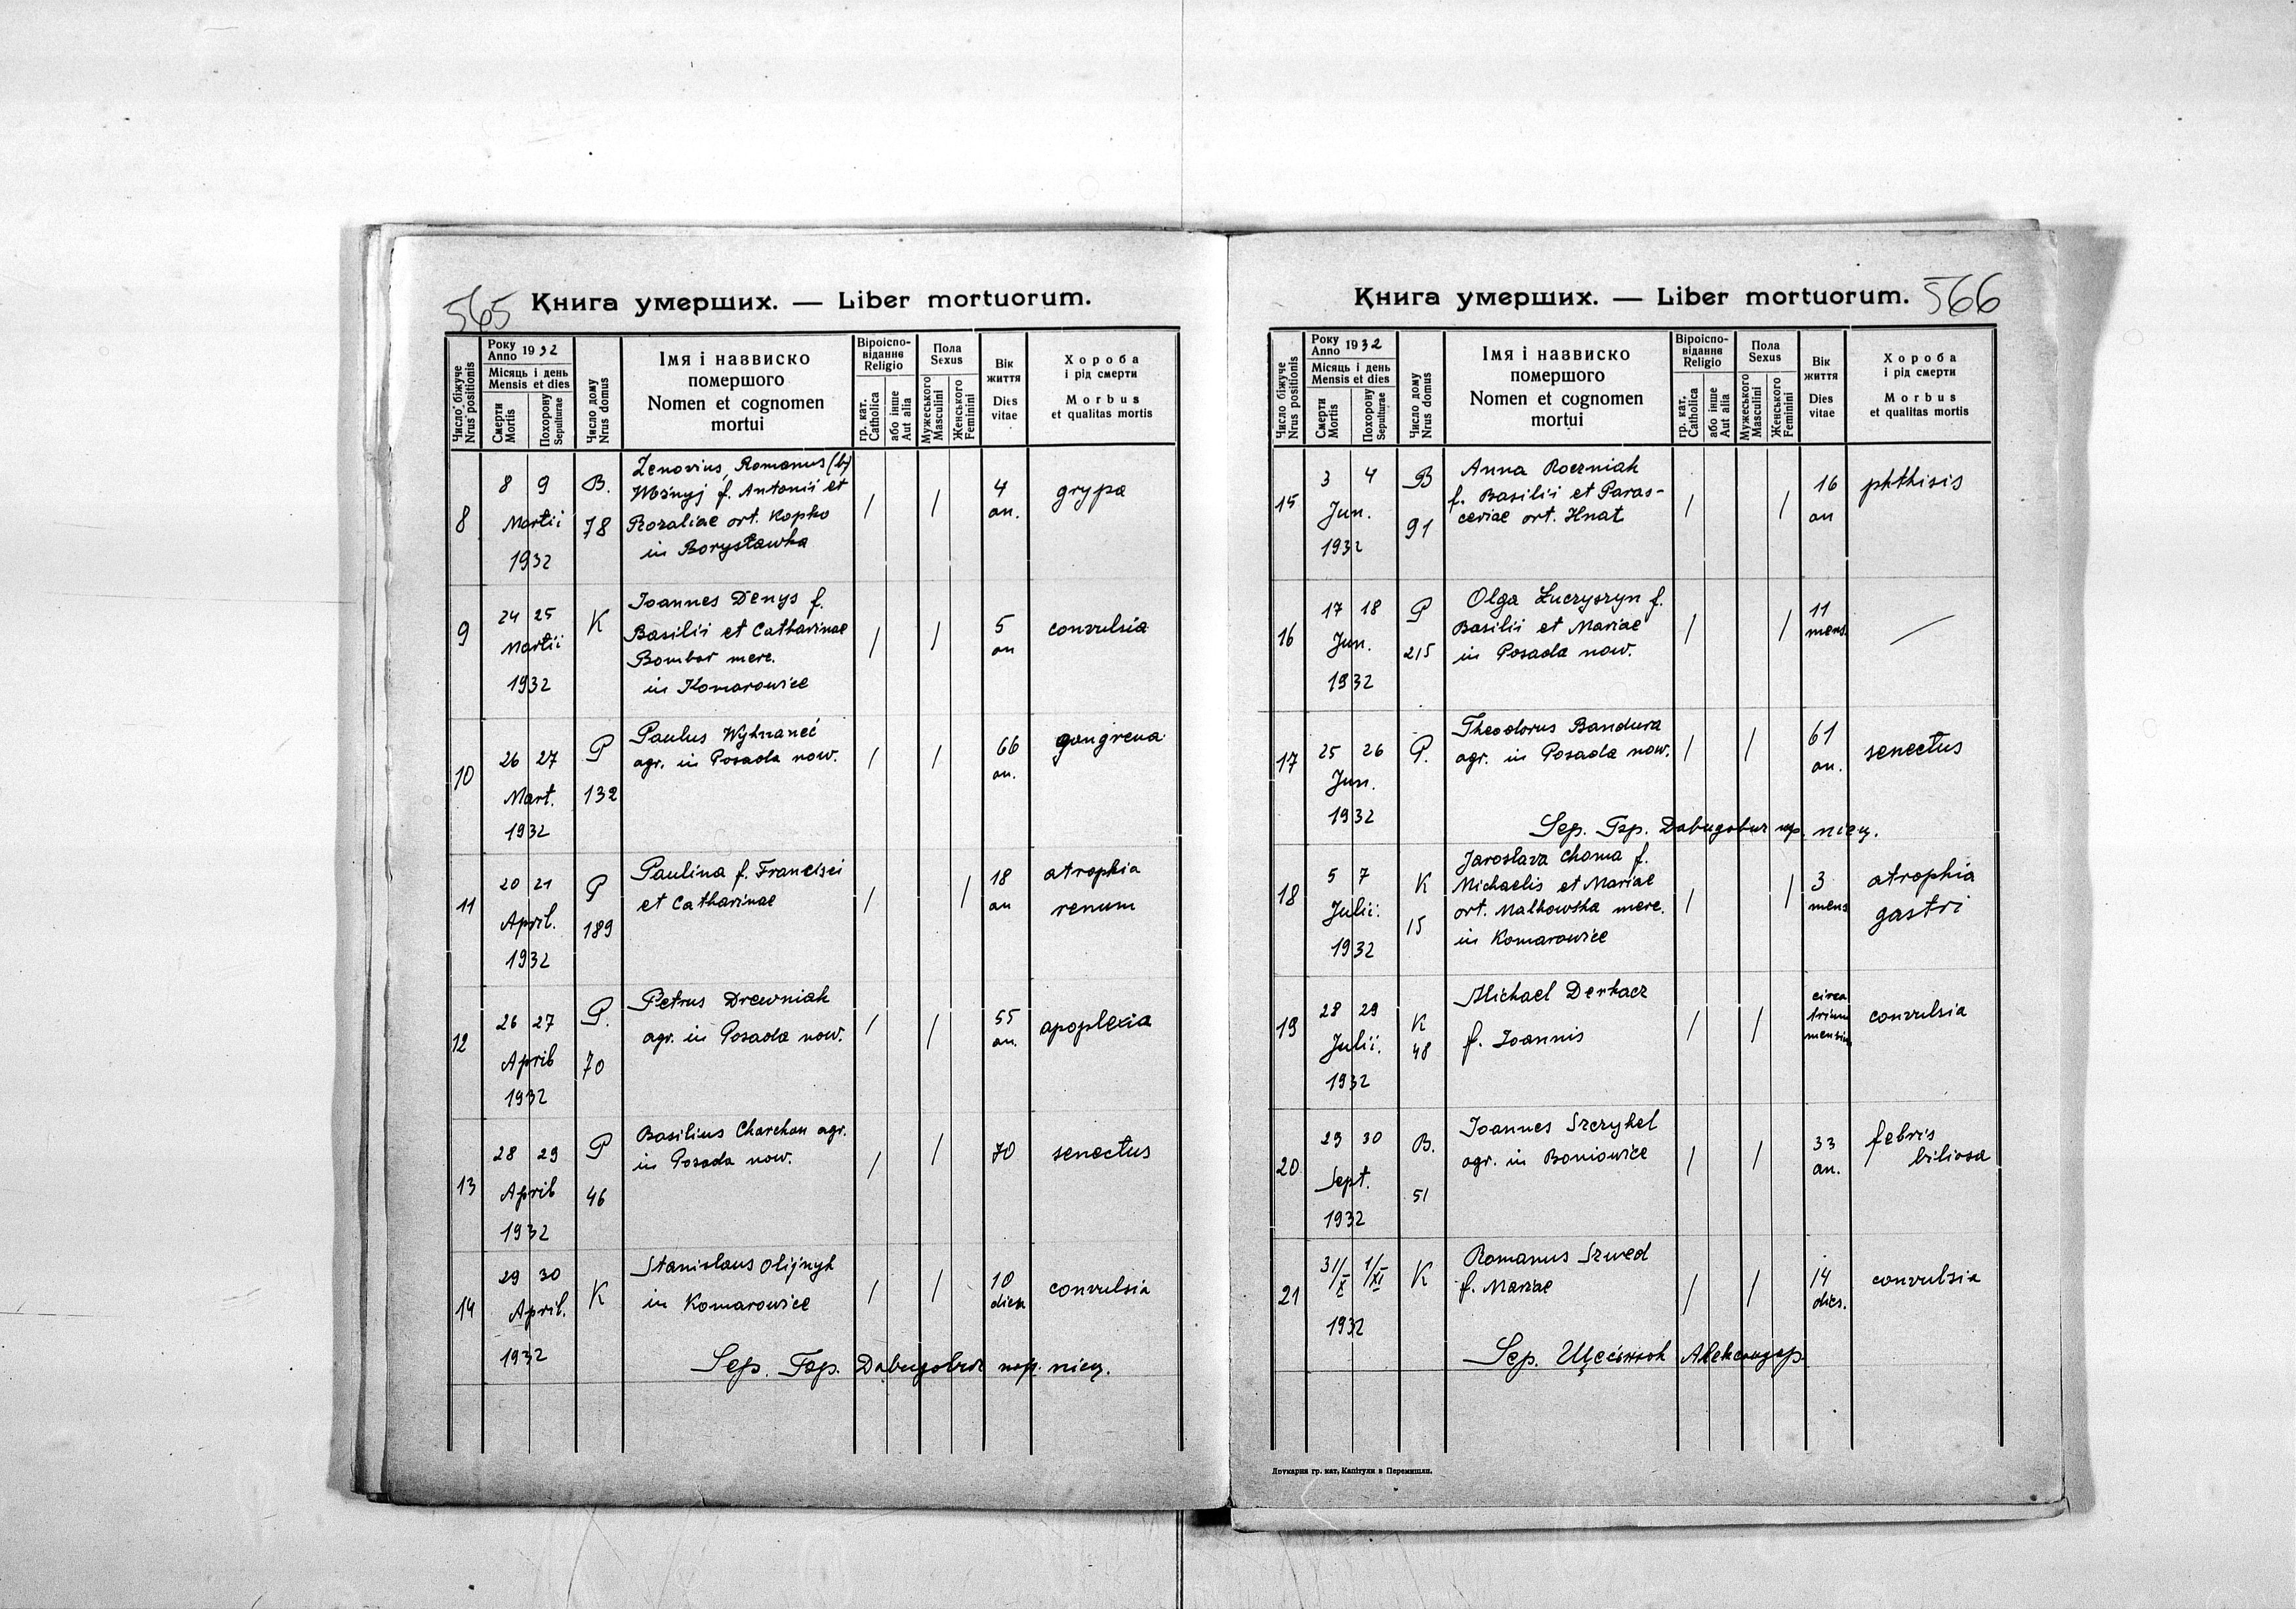 565
Книга умерших. — Liber mortuorum.
Число біжуче
Nrus positionis
Року
Anno 1932
Місяць і день
Mensis et dies
Смерти
Mortis
Похорону
Sepulturae
Число дому
Nrus domus
Імя і назвиско
помершого
Nomen et cognomen
mortui
Віроіспо-
відання
Religio
гр. кат.
Catholica
або інше
Aut alia
Пола
Sexus
Мужеського
Masculini
Женського
Feminini
Вік
життя
Dies
vitae
Хороба
і рід смерти
Morbus
et qualitas mortis
8
8 9
Martii
1932
B.
78
Zenovius, Romanus (b)
f. Antonii et
Rozaliae ort. Kopko
in Borysławka
/ /
4
an.
grypa
9
24 25
Martii
1932
K
Ioannes Denys f.
Basilii et Catharinae
Bombar merc.
in Komarowice
/ /
5
an
convulsia
10
26 27
Mart.
1932
P
132
Paulus Wyhnaneć
agr. in Posada now.
/ /
66
an.
gangrena
11
20 21
April.
1932
P
189
Paulina f. Francisci
et Catharinae
/ /
18
an
atrophia
renum
12
26 27
April
1932
P.
70
Petrus Drewniak
agr. in Posada now.
/ /
55
an.
apoplexia
13
28 29
April
1932
P
46
Basilius Charchan agr.
in Posada now.
/ /
70
senectus
14
29 30
April.
1932
K
Stanislaus Olijnyk
in Komarowice
/ /
10
dies
convulsia
Sep. Гр.
566
Книга умерших. — Liber mortuorum.
Число біжуче
Nrus positionis
Року
Anno 1932
Місяць і день
Mensis et dies
Смерти
Mortis
Похорону
Sepulturae
Число дому
Nrus domus
Імя і назвиско
помершого
Nomen et cognomen
mortui
Віроіспо-
відання
Religio
гр. кат.
Catholica
або інше
Aut alia
Пола
Sexus
Мужеського
Masculini
Женського
Feminini
Вік
життя
Dies
vitae
Хороба
і рід смерти
Morbus
et qualitas mortis
15
3 4
Jun.
1932
B
91
Anna Roczniak
f. Basilii et Paras-
ceviae ort. Hnat
/ /
16
an
phthisis
16
17 18
Jun.
1932
P
215
Olga Łuczyszyn f.
Basilii et Mariae
in Posada now.
/ /
11
mens.
—
17
25 26
Jun.
1932
P.
Theodorus Bandura
agr. in Posada now.
/ /
61
an.
senectus
Sep. Гр.
18
5 7
Julii.
1932
K
15
Jaroslava Choma f.
Michaelis et Mariae
ort. Malkowska merc.
in Komarowice
/ /
3
mens
atrophia
gastri
19
28 29
Julii.
1932
K
48
Michael Derkacz
f. Ioannis
/ /
circa
trium
mensium
convulsia
20
29 30
Sept.
1932
B.
51
Ioannes Szczykel
agr. in Boniowice
/ /
33
an.
febris
biliosa
21
31/X 1/XI
1932
K
Romanus Szwed
f. Mariae
/ /
14
dies.
convulsia
Sep. Александер
Друкарня гр. кат. Капітули в Перемишли.